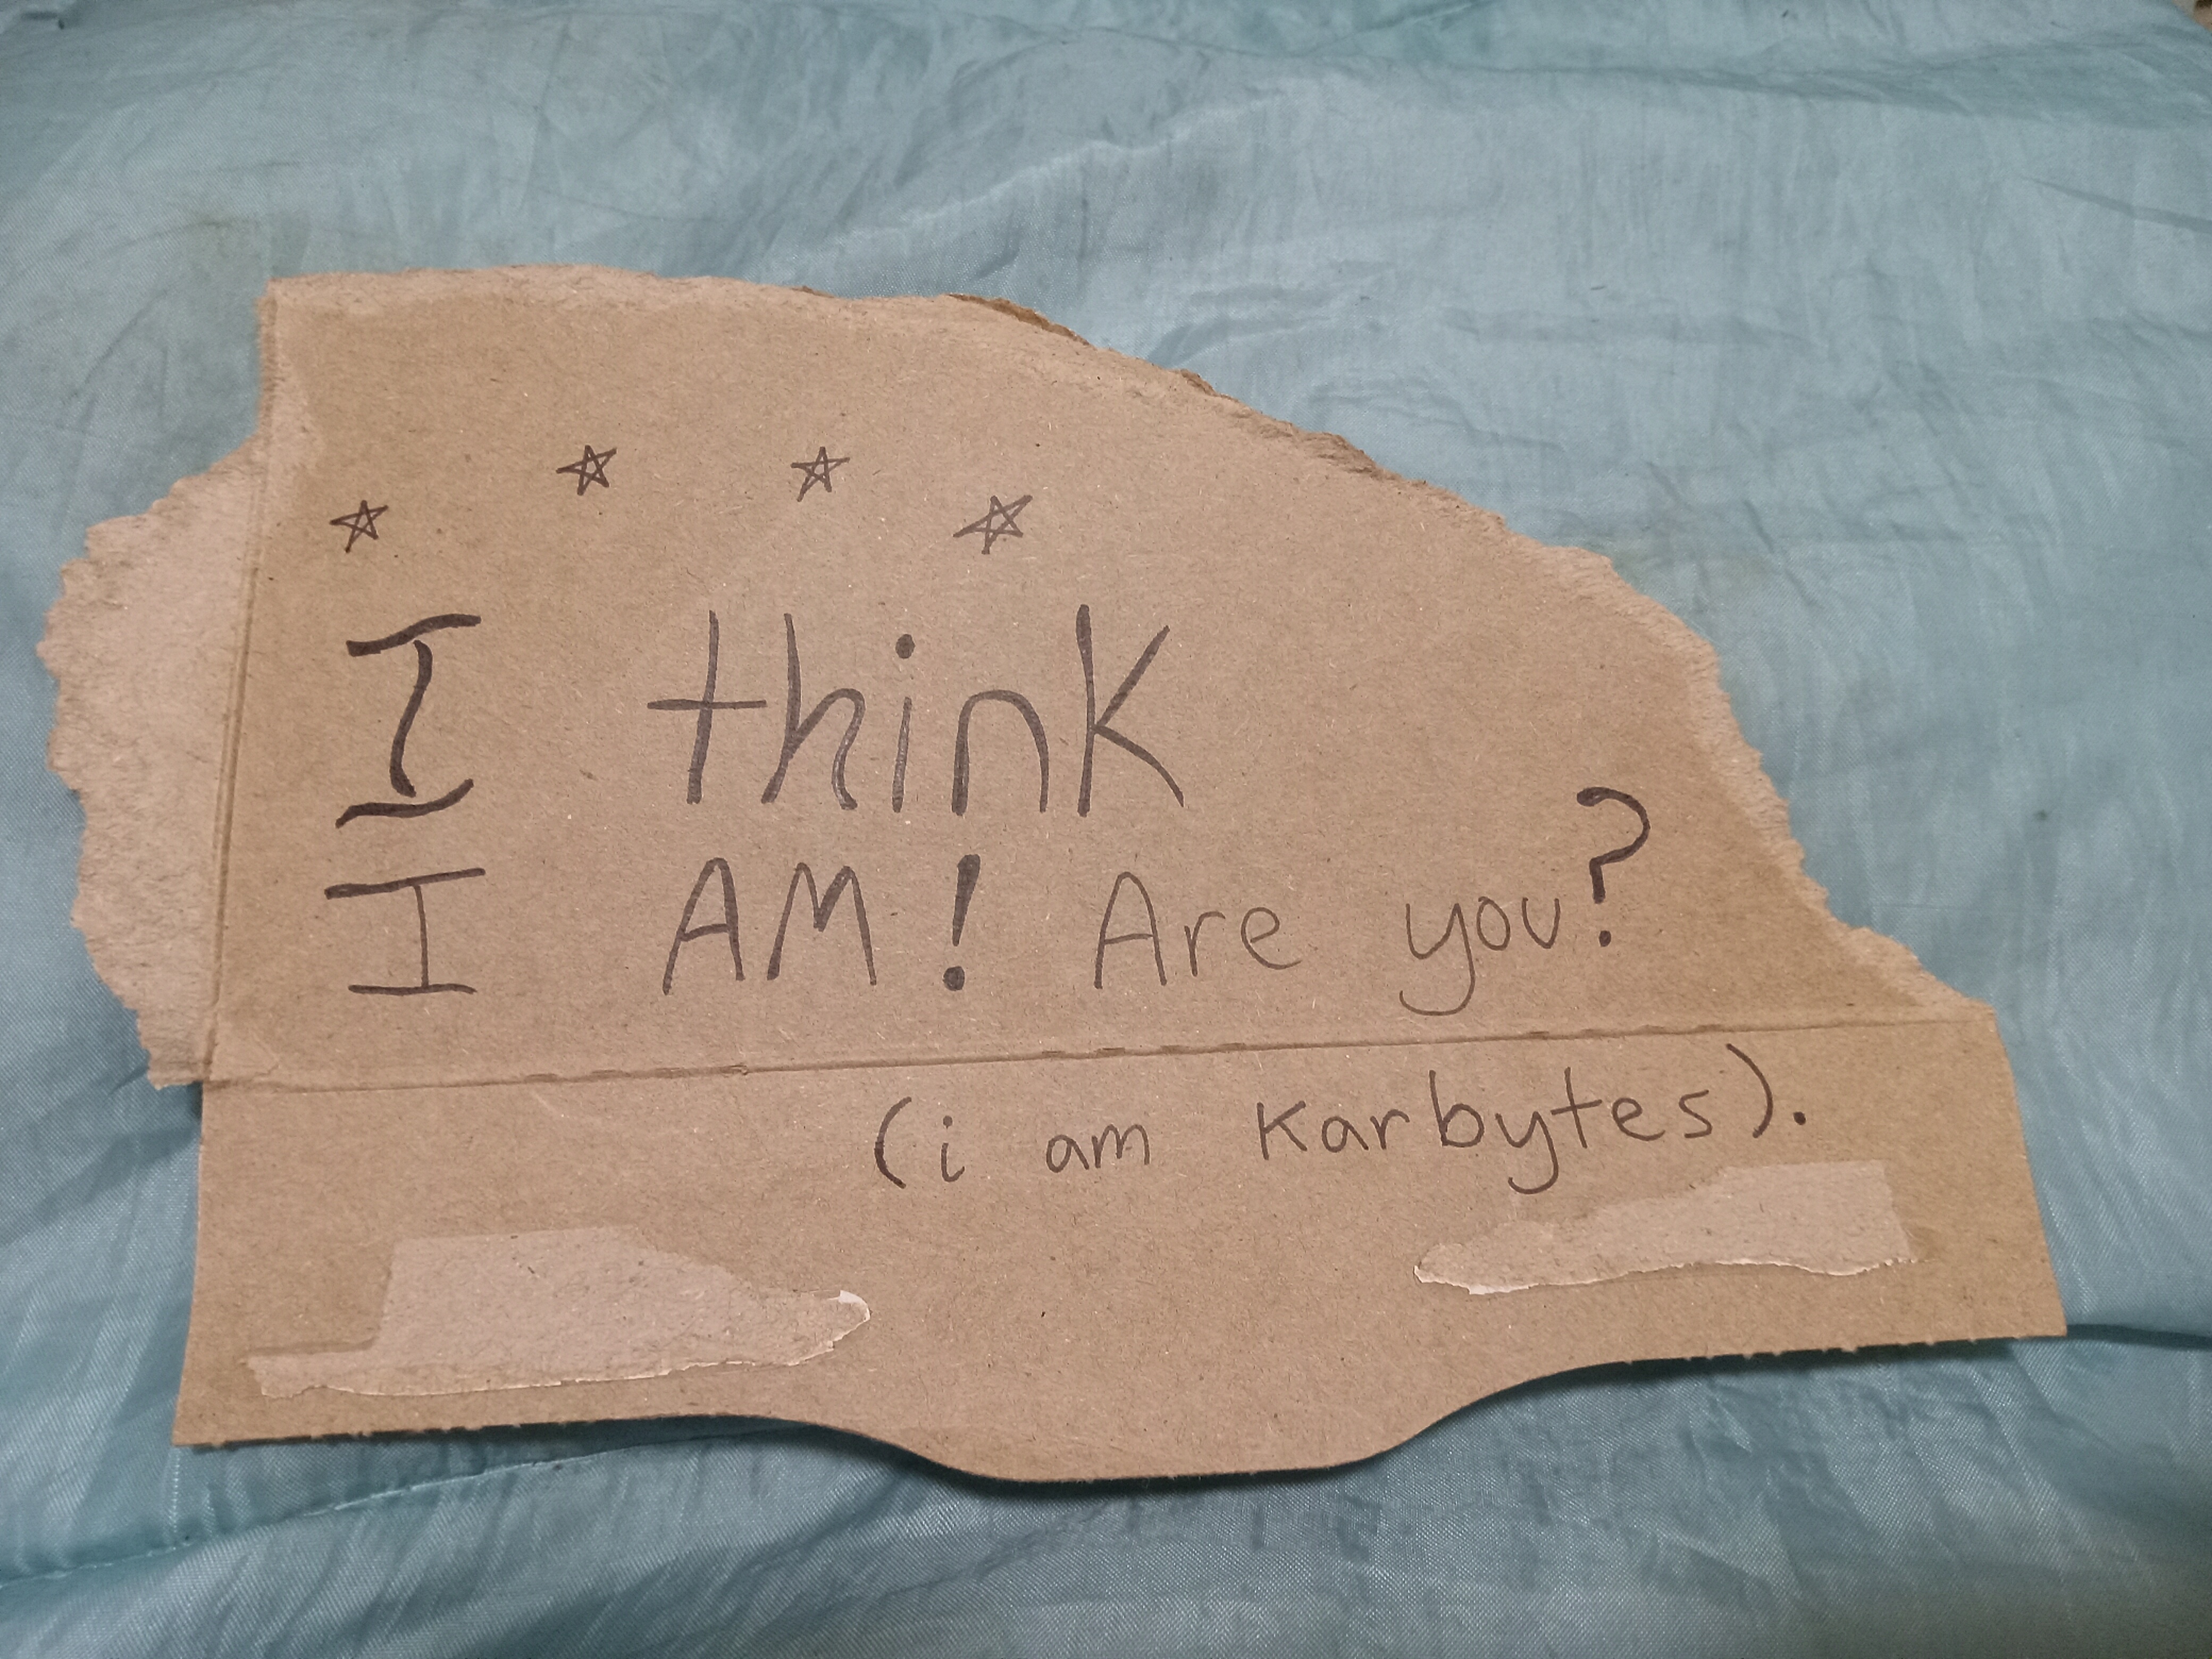 I think
I AM! Are you?
(i am Karbytes).